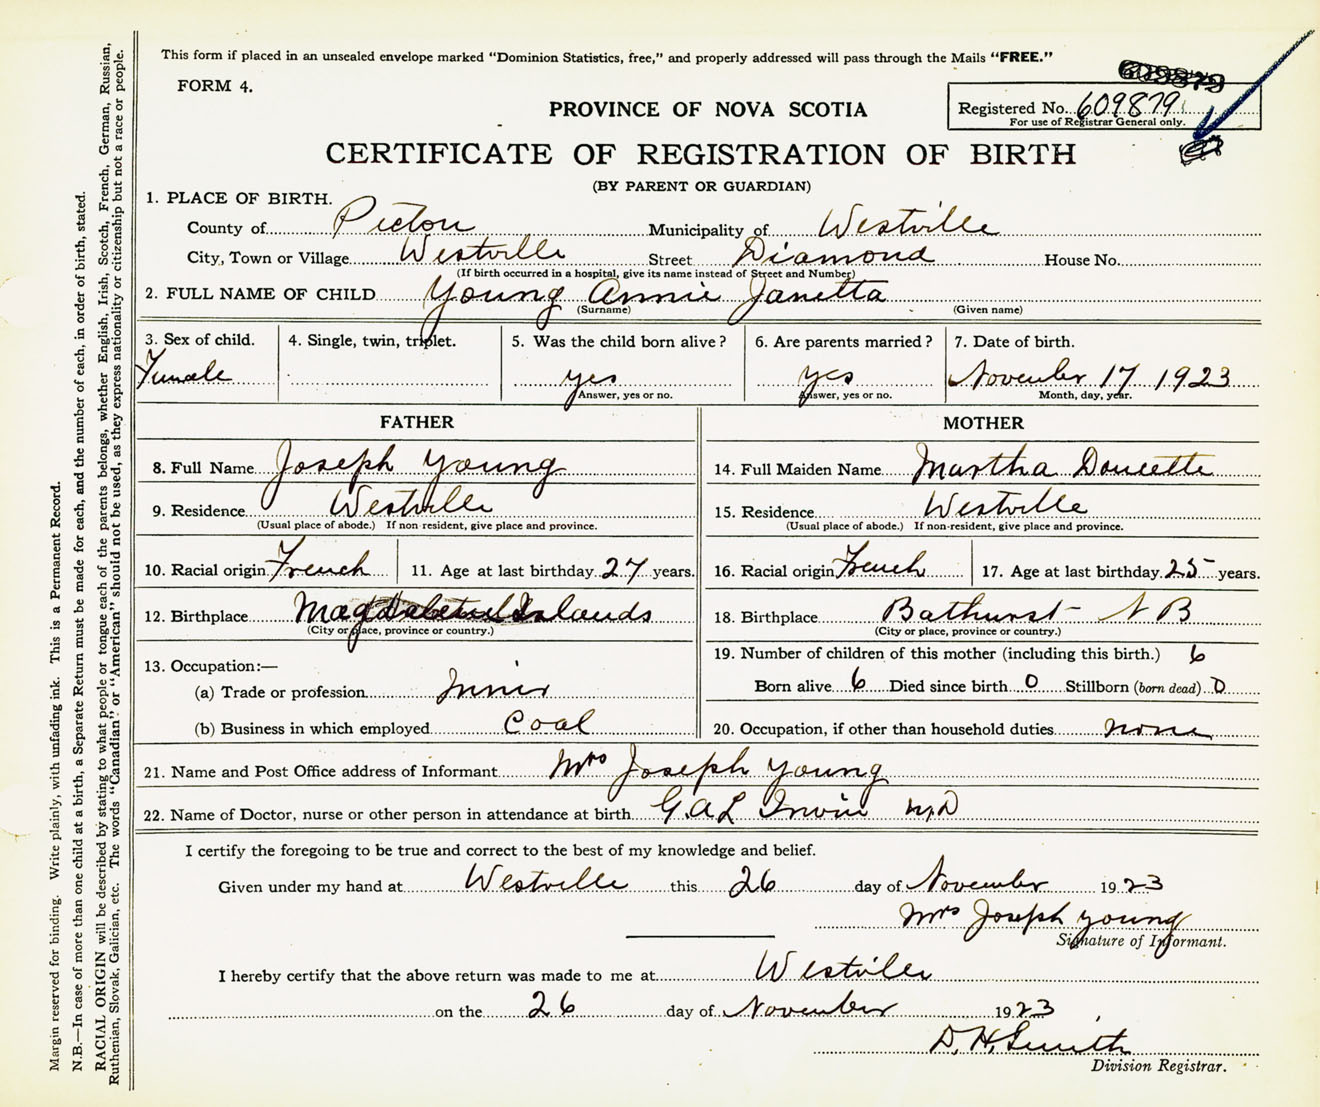 This form if placed in an unsealed envelope marked "Dominion Statistics, free," and properly addressed will pass through the Mails "FREE."
FORM 4.
609879
PROVINCE OF NOVA SCOTIA
Registered No. 609879
For use of Registrar General only.
CERTIFICATE OF REGISTRATION OF BIRTH
(BY PARENT OR GUARDIAN)
1. PLACE OF BIRTH.
County of Pictou Municipality of Westville
City, Town or Village Westville Street Diamond House No.
(If birth occurred in a hospital, give its name instead of Street and Number)
2. FULL NAME OF CHILD Young Annie Janetta
(Surname) (Given name)
3. Sex of child. 4. Single, twin, triplet. 5. Was the child born alive? 6. Are parents married? 7. Date of birth.
Female yes yes November 17 1923
Answer, yes or no. Answer, yes or no. Month, day, year.
FATHER MOTHER
8. Full Name Joseph Young 14. Full Maiden Name Martha Doucette
9. Residence Westville 15. Residence Westville
(Usual place of abode.) If non-resident, give place and province. (Usual place of abode.) If non-resident, give place and province.
10. Racial origin French 11. Age at last birthday 27 years. 16. Racial origin French 17. Age at last birthday 25 years.
12. Birthplace Magdalen Islands 18. Birthplace Bathurst N B
(City or place, province or country.) (City or place, province or country.)
13. Occupation:— 19. Number of children of this mother (including this birth.) 6
(a) Trade or profession Miner Born alive 6 Died since birth 0 Stillborn (born dead) 0
(b) Business in which employed Coal 20. Occupation, if other than household duties none
21. Name and Post Office address of Informant Mrs Joseph Young
22. Name of Doctor, nurse or other person in attendance at birth G.A.L Irwin M.D
I certify the foregoing to be true and correct to the best of my knowledge and belief.
Given under my hand at Westville this 26 day of November 1923
Mrs Joseph Young
Signature of Informant.
I hereby certify that the above return was made to me at Westville
on the 26 day of November 1923
D. H. Smith
Division Registrar.
Margin reserved for binding. Write plainly, with unfading ink. This is a Permanent Record.
N.B.—In case of more than one child at a birth, a Separate Return must be made for each, and the number of each, in order of birth, stated.
RACIAL ORIGIN will be described by stating to what people or tongue each of the parents belongs, whether English, Irish, Scotch, French, German, Russian,
Ruthenian, Slovak, Galician, etc. The words "Canadian" or "American" should not be used, as they express nationality or citizenship but not a race or people.